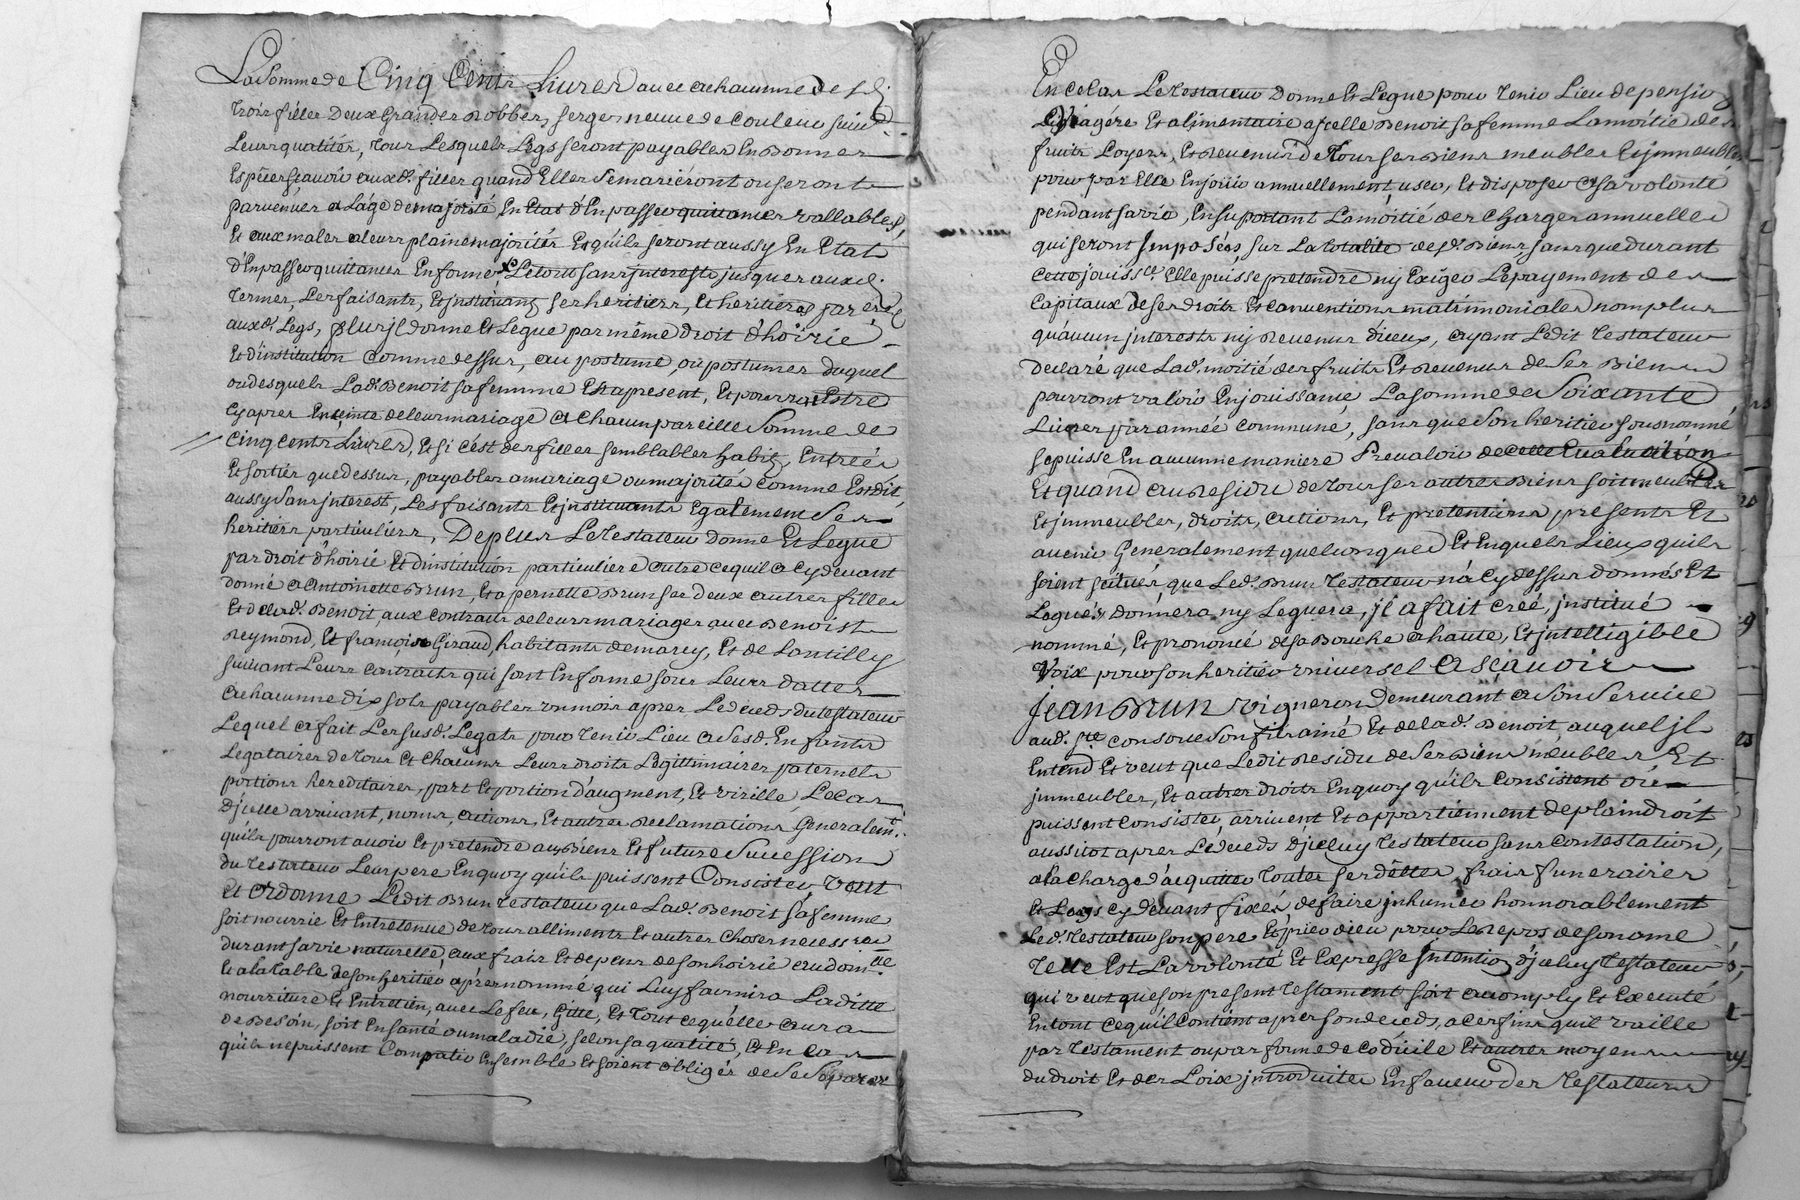 La Somme de Cinq Cents Livres avec a chaucunne de sd.
trois filles Deux Grandes Robbes, serge neuve de couleur suiv.
Leurs qualités, tous Lesquels Legs seront payables En Bonnes
Espèces scavoir auxd. filles quand Elles Se mariéront ou seront
parvenues a L'age de majorité, En Etat d'En passer quittances vallables,
Et aux males a leurs plaine majorités Et qu'ils seront aussy En Etat
d'En passer quittances En forme, Le tout sans jnterests jusques auxd.
termes, Les faisants, Et jnstituants ses heritiers, Et heritieres
auxd. Legs, plus jl donne Et Legue par même droit d'hoirie
Et d'institution comme dessus, au postume ou postumes duquel
ou desquels Lad. Benoit sa femme Est apresent, Et pourra Estre
Cy apres Enceinte de leur mariage a chacun pareille Somme de
Cinq cents Livres, Et si c'est des filles semblables habits, Entrées
Et sorties que dessus, payables a mariage ou majorité comme Est dit,
aussy sans jnterest, Les faisants Et jnstituants Egalement Ses
heritiers particuliers, De plus Le Testateur donne Et Legue
par droit d'hoirie Et d'institution particuliere outre ce quil a Cy devant
donné a Antoinette Brun, Et a pernette Brun ses deux autres filles
Et de lad. Benoit aux contracts de leurs mariages avec Benoist
Reymond, Et françois Giraud, habitants de marcy, Et de Lentilly
suivant Leurs contracts qui sont En forme sous Leurs dattes
a chacunne dix sols payables un mois apres Le deceds du testateur
Lequel a fait Les susd. Legats pour tenir Lieu a Sesd. Enfants
Legataires de tous Et chacuns Leurs droits Legittimaires paternels
portions hereditaires, part Et portion d'augment, Et virille Le cas
d'jcelle arrivant, noms, actions, Et autres reclamations Generalemt.
quils pourront avoir Et pretendre aux Biens Et future Succession
du testateur Leur pere En quoy qu'ils puissent Consister, veut
Et Ordonne Ledit Brun testateur que Lad. Benoit sa femme
soit nourrie Et Entretenue de tous alliments Et autres choses necessres
durant sa vie naturelle, aux frais Et depens de son hoirie au domlle
Et a la table de son heritier après nommé qui Luy fournira Laditte
nourriture Et Entretien, avec Le feu, Gitte, Et tout ce qu'elle aura
de Besoin, soit En santé ou maladie, selon sa qualité, Et En cas
qu'ils ne puissent Compatir Ensemble Et soient obligés de Se Separer
En ce cas Le testateur Donne Et Legue pour tenir Lieu de pension
Viagére Et alimentaire a jcelle Benoit sa femme La moitié des
fruits Loyers, Et revenus de tous ses Biens meubles Et jmmeubles
pour par Elle En joüir annuellement user, Et disposer a sa volonté
pendant sa vie, En suportant La moitié des charges annuelles
qui seront Imposées, sur La totalité desd. Biens, sans que durant
Cette jouissce. Elle puisse pretendre ny Exiger Le payement des
Capitaux de ses droits Et conventions matrimoniales non plus
qu'aucun jnterests ny Revenus d'jceux, ayant Ledit Testateur
Declaré que Lad. moitié des fruits Et Revenus de Ses Biens
pourront valoir En jouissance, La somme de Soixante
Livres par année commune, sans que Son heritier sousnommé
se puisse En aucunne maniere Prevaloir de cette Evaluation
Et quand au Residu de tous ses autres Biens soit meubles
Et jmmeubles, droits, actions, Et pretentions presents Et
avenir Generalement quelconques Et En quels Lieux quils
soient scitués que Led. Brun Testateur n'a Cy dessus donnés Et
Legués, donnera ny Leguera, jl a fait creé, jnstitué
nommé, Et prononcé de sa Bouche a haute, Et jntelligible
Voix pour son heritier universel A sçavoir
jean Brun vigneron Demeurant a Son Service
aud. Ste. consorce Son fils ainé Et de lad. Benoit, auquel jl
Entend Et veut que Ledit Residu de Ses Biens meubles Et
jmmeubles, Et autres droits En quoy qu'ils Consistent où
puissent consister, arrivent Et appartiennent de plain droit
aussitot apres Le deceds d'jceluy testateur sans contestation,
a la Charge d'acquitter toutes ses dêttes, frais funeraires
Et Legs cy devant fixés, de faire jnhumer honnorablement
Led. testateur son pere Et prier dieu pour Le Repos de son ame
Telle Est La volonté Et Expresse Intention d'jceluy Testateur
qui veut que son present testament soit accomply Et Executé
En tout ce quil Contient apres son deceds, a ces fins quil vaille
par testament ou par forme de codicile Et autres moyens
du droit Et des Loix jntroduites En faveur des Testateurs